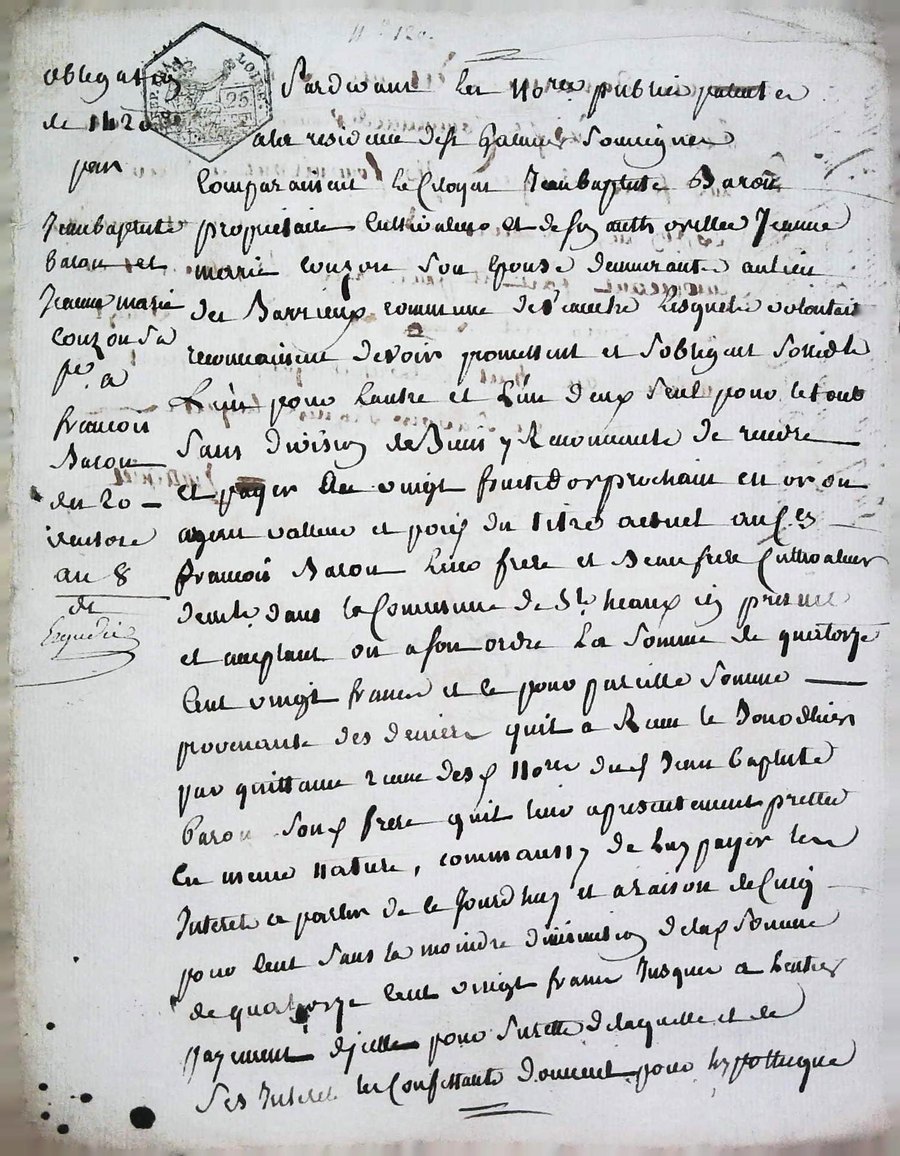 obligation
de 1420
par
Jean baptiste
baron et
Jeanne marie
couzon sa
fe. a
francois
Baron
du 20
ventose
an 8
25
Pardevant Les Nores publics
a la residence de St Galmier Soussignes
Comparaissent le Citoyen Jean baptiste Baron
propriétaire Cultivateur et de son authorittée Jeanne
marie couzon son Epouse demeurants au lieu
des Barrieux commune de Veauche Lesquels volontait
reconnaissent devoir promettent et sobligent
L'un pour Lautre et L'un deux seul pour le tout
Sans division de Biens y Renoncants de rendre
et payer Au vingt fructidor prochain en or ou
argent valleur et poids du titre actuel au Cen
francois Baron Leur frere et Beau frere Cultivateur
demt. dans la Commune de St heaux icy present
et acceptant ou a son ordre La somme de quatorze
Cent vingt francs et ce pour pareille Somme
provenante des deniers quil a Recu ce Jourdhier
par quittance recue des Nores dud Jean Baptiste
baron son frere quil leur a presentement prettee
En meme Nature, comm aussy de luy payer les
Interets a partir de ce Jourdhuy et a raison de Cinq
pour Cent sans la moindre diminution de la Somme
de quatorze Cent vingt francs Jusques a Lentier
payement dicelle pour Surette de laquelle et de
Ses Interets les Confessants donnent pour hypotheque